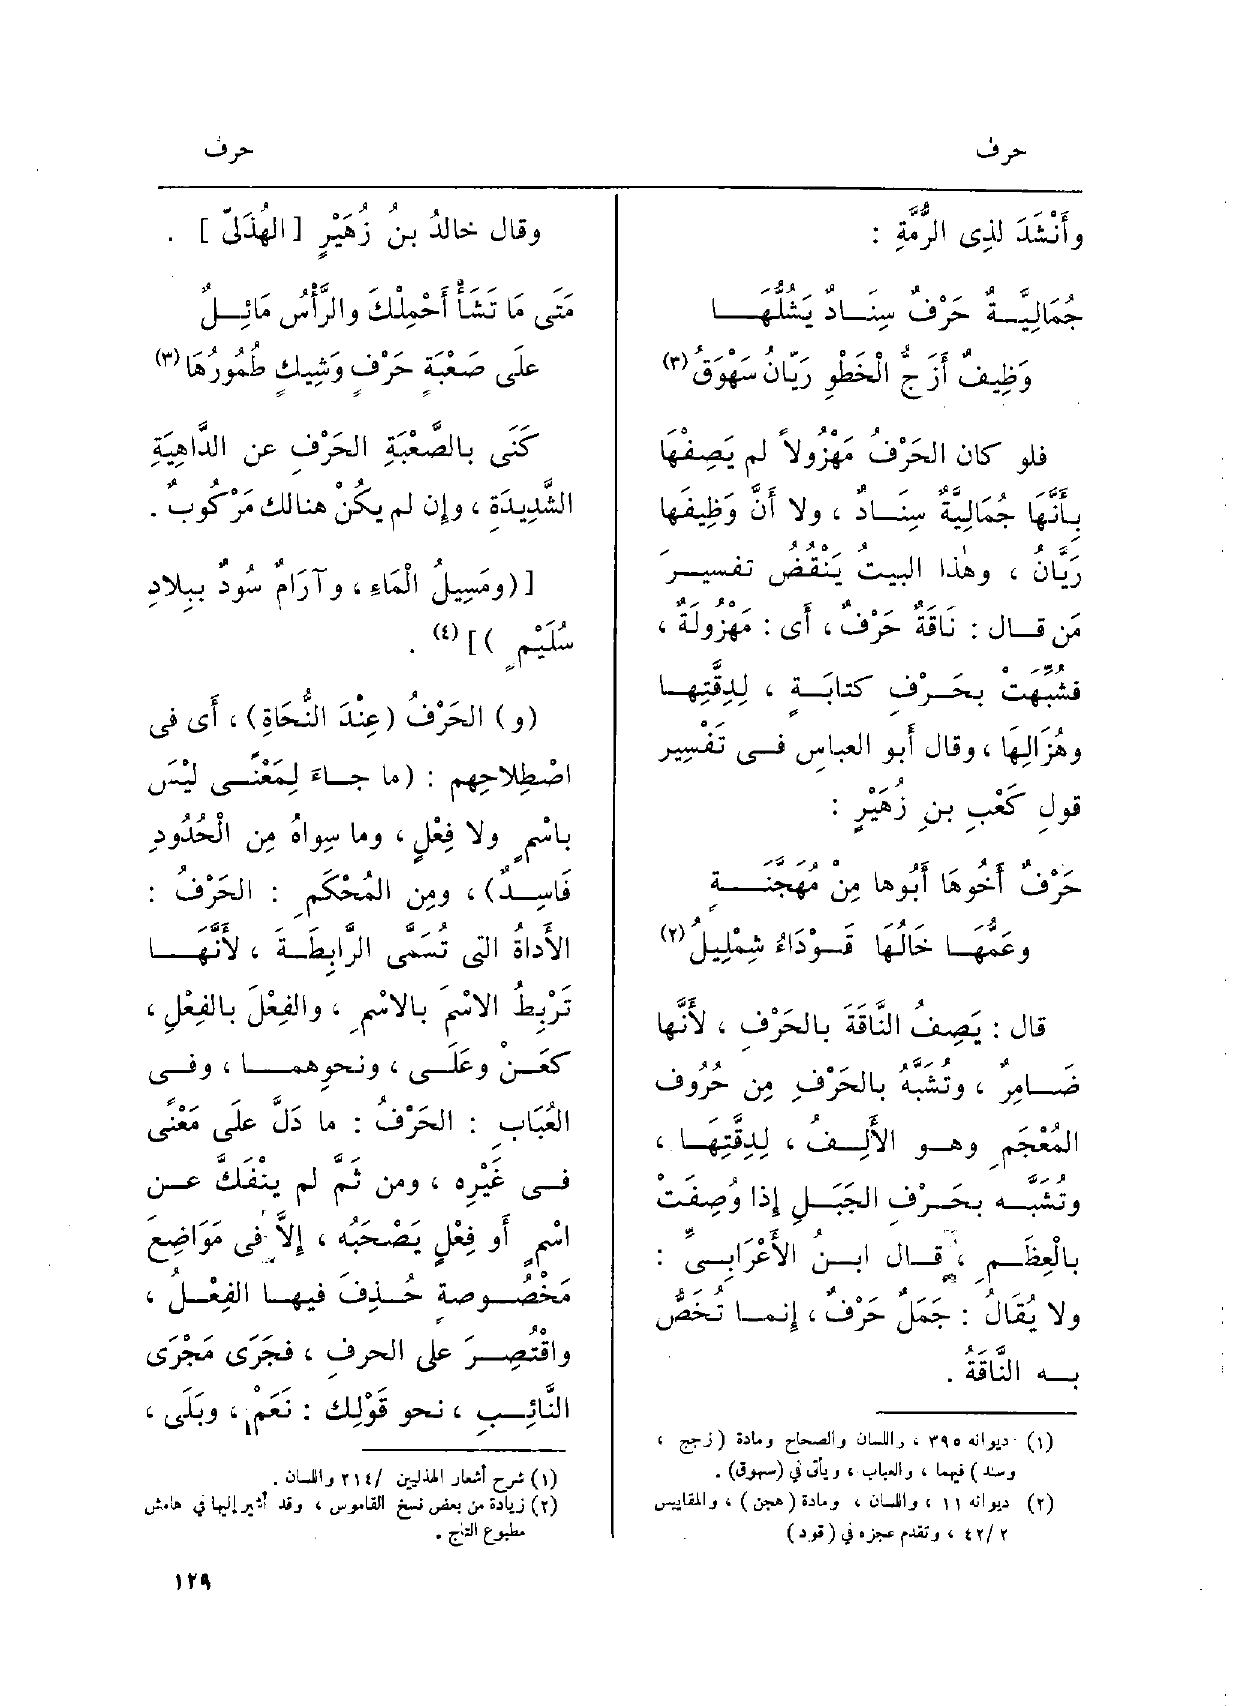 حرف
حرف
وأَنْشَدَ لذِى الرُّمَّةِ :
جُمَالِيَّـةٌ حَرْفٌ سِنَـادٌ يَشُلُّهَـا
وَظِيفٌ أَزَجُّ الْخَطْوِ رَيّانُ سَهْوَقُ (٣)
فلو كان الحَرْفُ مَهْزُولاً لم يَصِفْهَا
بِأَنَّهَا جُمَالِيَّةٌ سِنَـادٌ ، ولا أَنَّ وَظِيفَها
رَيَّانُ ، وهٰذا البيتُ يَنْقُضُ تفسيـرَ
مَن قـال : نَاقَةٌ حَرْفٌ، أى : مَهْزُولَةٌ ،
فشُبِّهَتْ بحَـرْفِ كتابَـةٍ ، لِدِقَّتِهـا
وهُزَالِهَا ، وقال أَبو العباسِ فـى تَفْسِير
قولِ كَعْبِ بنِ زُهَيْرٍ :
حَرْفٌ أَخُوهَا أَبُوها مِنْ مُهَجَّنَـةٍ
وعَمُّهَـا خَالُهَا قَـوْدَاءُ شِمْلِيلُ (٢)
قال : يَصِفُ النَّاقَةَ بالحَرْفِ ، لأَنَّها
ضَـامِرٌ ، وتُشَبَّهُ بالحَرْفِ مِن حُرُوف
المُعْجَمِ وهـو الأَلِـفُ ، لِدِقَّتِهَـا ،
وتُشَبَّـه بحَـرْفِ الجَبَـلِ إذا وُصِفَتْ
بالْعِظَـمِ ، قـال ابـنُ الأَعْرَابِـىِّ :
ولا يُقَالُ : جَمَلٌ حَرْفٌ ، إنمـا تُخَصُّ
بـه النَّاقَةُ .
(١) ديوانه ٣٩٥ ، واللسان والصحاح ومادة (زجج ،
وسند) فيهما ، والعباب ، ويأتى فى (سهوق) .
(٢) ديوانه ١١ ، واللسان ، ومادة (هجن) ، والمقاييس
٤٢/٢ ، وتقدم عجزه فى (قود)
وقال خالدُ بنُ زُهَيْرٍ [الهُذَلىّ ] .
مَتَى مَا تَشَأْ أَحْمِلْكَ والرَّأْسُ مَائِـلٌ
علَى صَعْبَةٍ حَرْفٍ وَشِيكٍ طُمُورُهَا (٣)
كَنَى بالصَّعْبَةِ الحَرْفِ عن الدَّاهِيَةِ
الشَّدِيدَةِ ، وإن لم يكُنْ هنالك مَرْكُوبٌ .
[ (ومَسِيلُ الْمَاءِ ، وآرَامٌ سُودٌ بِبِلادِ
سُلَيْمٍ ) ] (٤) .
(و) الحَرْفُ (عِنْدَ النُّحَاةِ) ، أى فى
اصْطِلاحِهم : (ما جـاءَ لِمَعْنًـى ليْسَ
باسْمٍ ولا فِعْلٍ ، وما سِواهُ مِن الْحُدُودِ
فَاسِـدٌ) ، ومِن المُحْكَمِ : الحَرْفُ :
الأَداةُ التى تُسَمَّى الرَّابِطَـةَ ، لأَنَّهـا
تَرْبِطُ الاسْمَ بالاسْمِ ، والفِعْلَ بالفِعْلِ ،
كعَـنْ وعَلَـى ، ونحوِهمـا ، وفـى
العُبَابِ : الحَرْفُ : ما دَلَّ علَى مَعْنًى
فـى غَيْرِه ، ومن ثَمَّ لم ينْفَكَّ عـن
اسْمٍ أَو فِعْلٍ يَصْحَبُه ، إلاَّ فى مَوَاضِعَ
مَخْصُـوصةٍ حُـذِفَ فيهـا الفِعْـلُ ،
واقْتُصِـرَ على الحرفِ ، فجَرَى مَجْرَى
النَّائِـبِ ، نحو قَوْلِك : نَعَمْ ، وبَلَى ،
(١) شرح أشعار الهذليين /٢١٤ واللسان .
(٢) زيادة من بعض نسخ القاموس ، وقد أشير إليها فى هامش
مطبوع التاج .
١٢٩